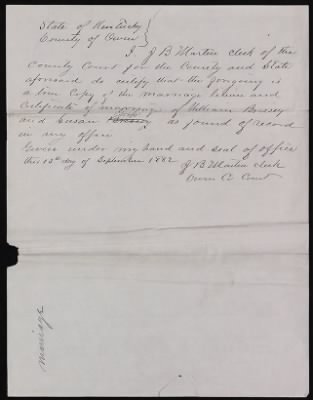 State of Kentucky
County of Owen
I, J B Martin clerk of the
County Court for the County and State
aforesaid do certify that the foregoing is
a true Copy of the marriage license and
Certificate of marriage of William
and Susan as found of record
in my office
Given under my hand and seal of office
this 13th day of September 1882
J B Martin clerk
Owen Co Court
marriage